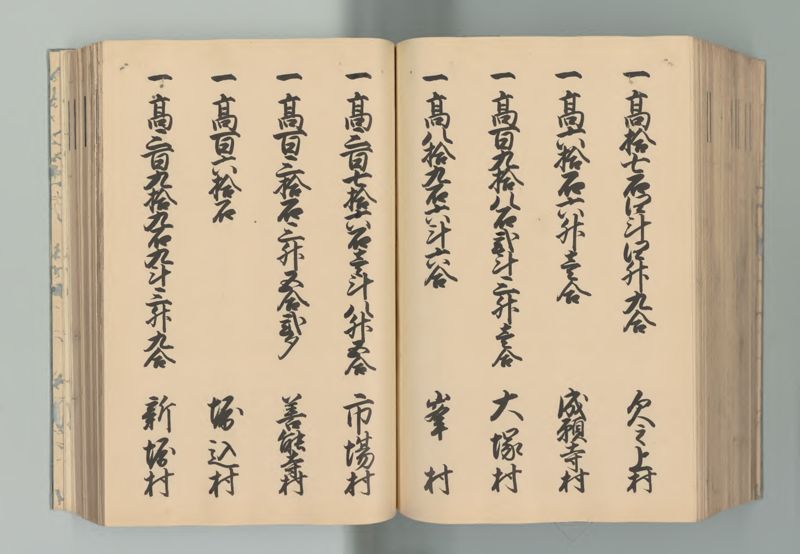 一高拾七石四斗四升九合 欠之上村
一高六拾石六升壱合 成願寺村
一高百九拾八石弐斗三升壱合 大塚村
一高八拾九石六斗六合 峯村
一高三百七拾六石壱斗八升五合 市場村
一高百三拾石三升五合弐夕 善能寺村
一高百六拾石 堀込村
一高三百九拾九石九斗三升九合 新堀村